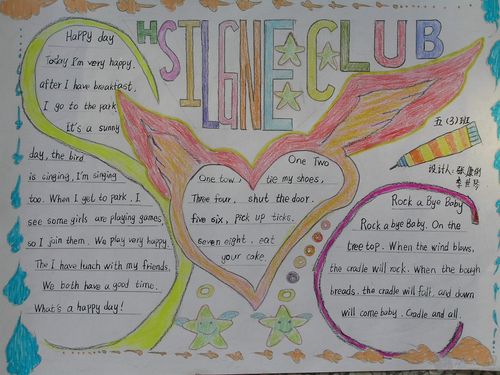 HSILGNE CLUB
Happy day
Today I'm very happy.
after I have breakfast,
I go to the park
It's a sunny
day, the bird
is singing, I'm singing
too. When I get to park. I
see some girls are playing games
so I join them. We play very happy.
The I have lunch with my friends.
We both have a good time.
What's a happy day!
One Two
One tow, tie my shoes,
Three four, shut the door.
five six, pick up ticks.
seven eight, eat
your cake.
五(3)班
设计人:
Rock a Bye Baby
Rock a bye Baby. On the
tree top. When the wind blows,
the cradle will rock. When the bough
breads. the cradle will falt. and down
will come baby. Cradle and all.